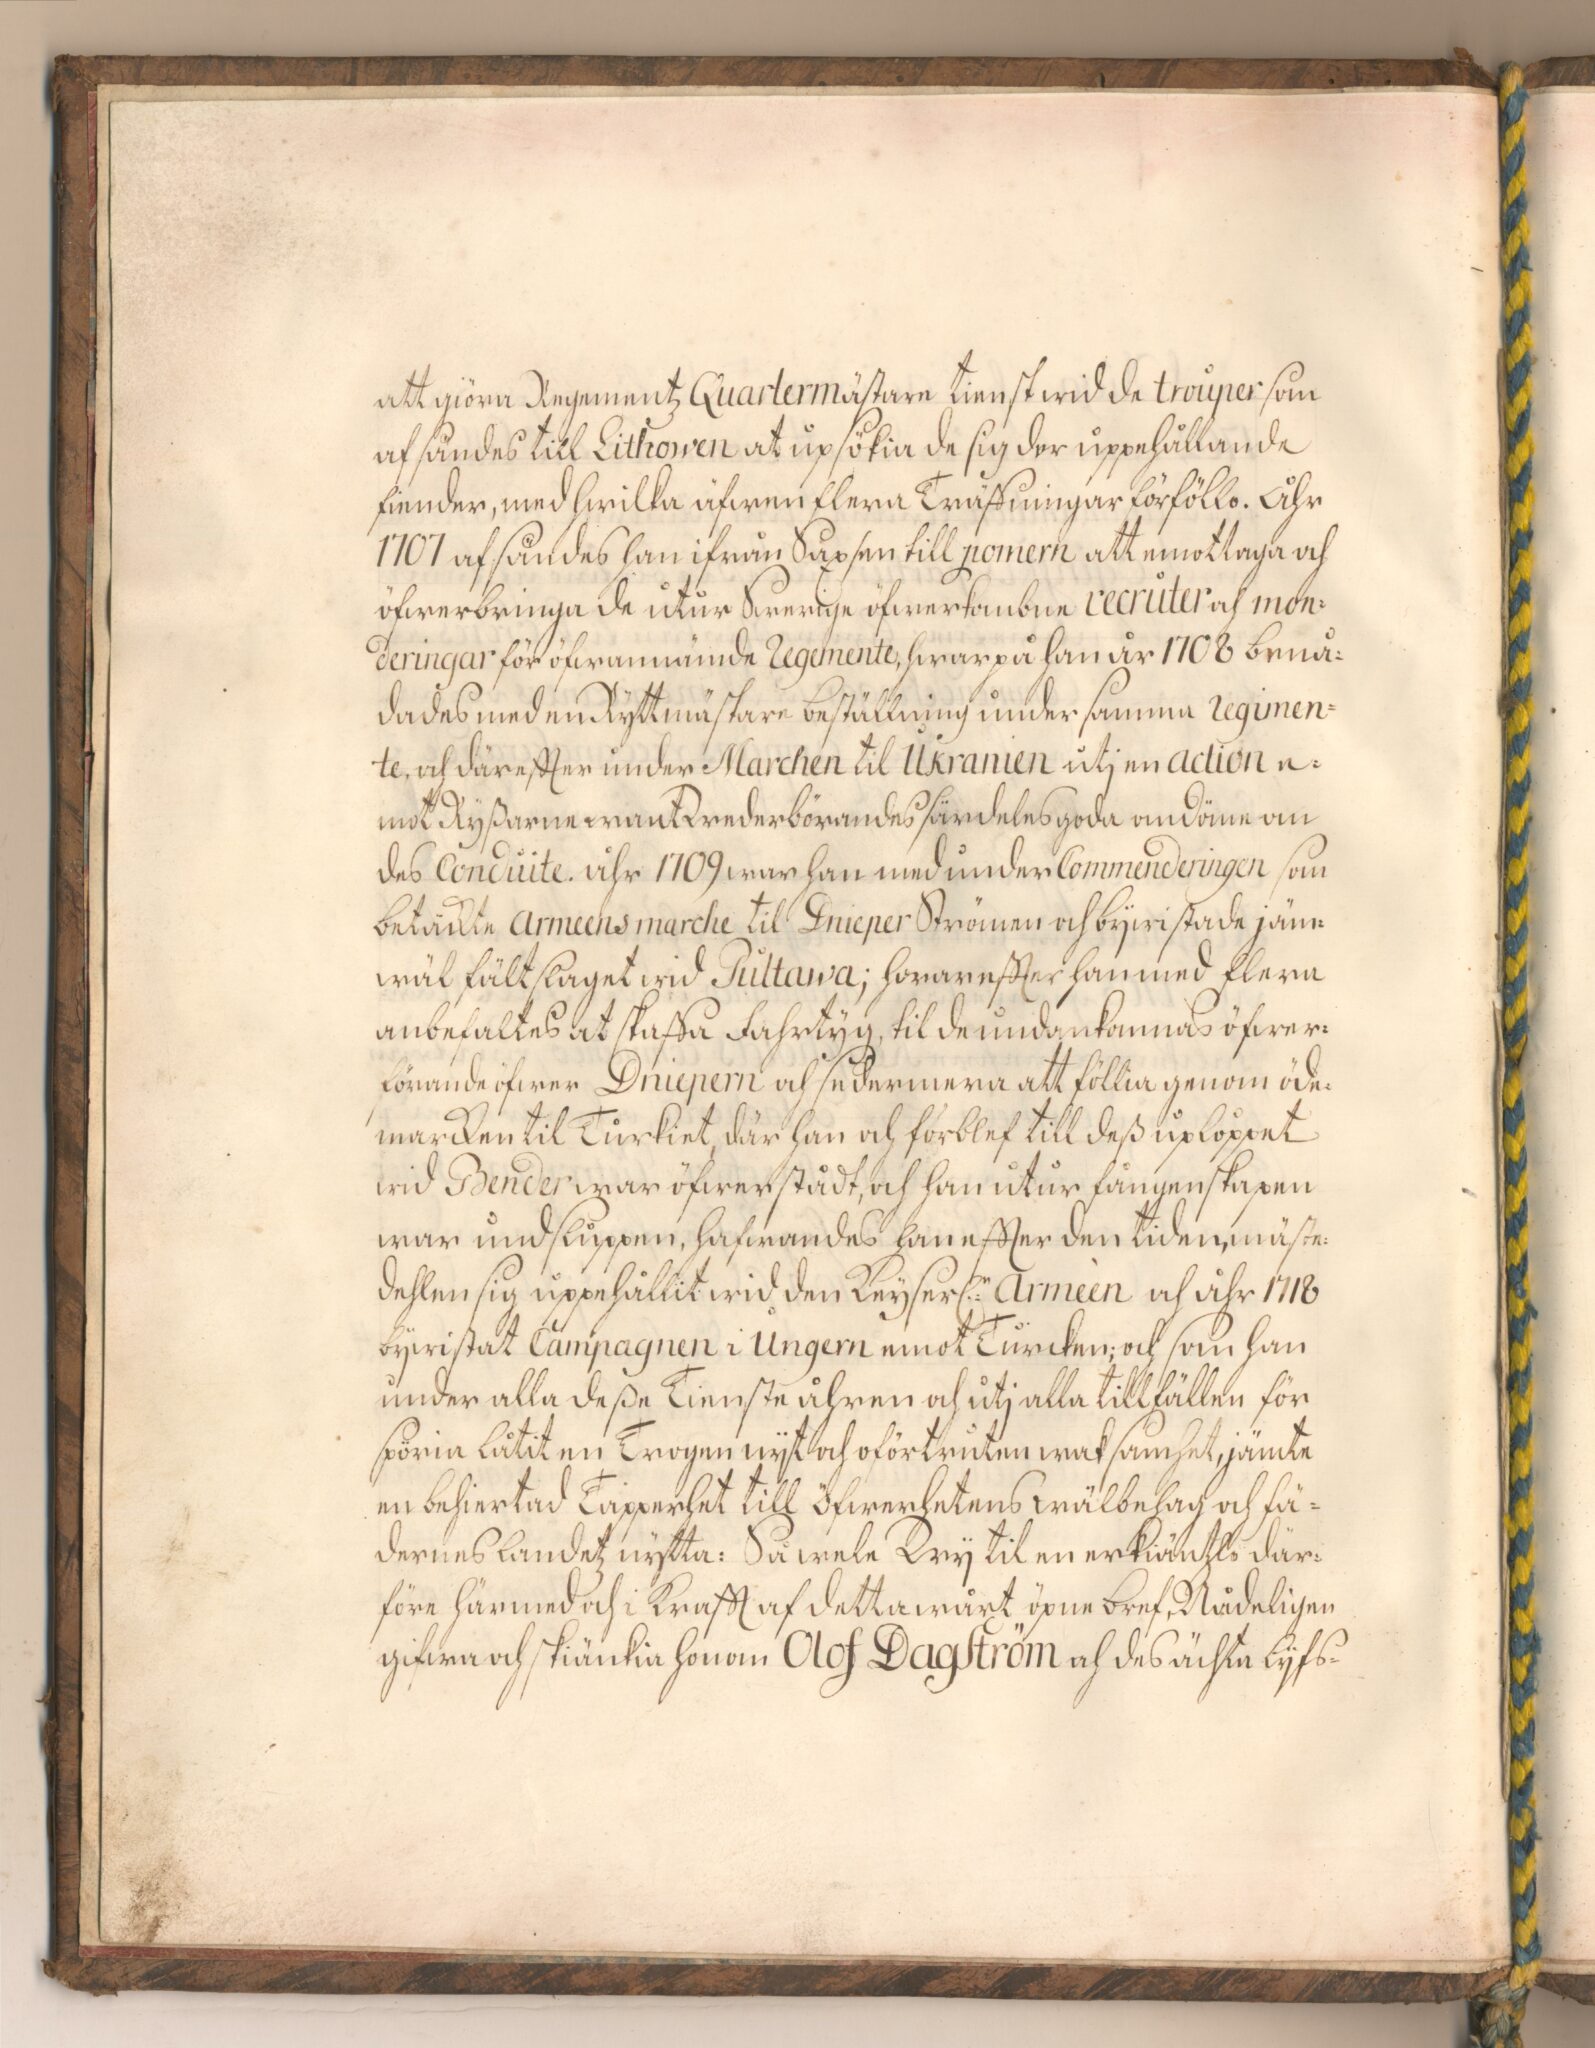 att giöra Regementz Quartermästare tienst wid de trouper som
afsändes till Lithowen at upsökia de sig der uppehållande
fiender, med hwilka äfwen flera Träffningar förföllo. Åhr
1707 afsändes han ifrån Saxsen till pomern att emottaga och
öfwerbringa de utur Swerige öfwerkombne recruter och mon=
deringar för öfwannämde Regemente, hwarpå han år 1708 benå=
dades med en Ryttmästare beställning under samma Regimen=
te, och därefter under Marchen til Ukranien utj en action e=
mot Ryßarne want wederbörandes särdeles goda omdöme om
des Conduite. åhr 1709 war han med under Commenderingen som
betäckte Armeens marche til Dnieper Strömen och bywistade jäm=
wäl fältslaget wid Pultawa; hwarefter han med flera
anbefaltes at skaffa Fahrtyg, til de undankomnas öfwer=
förande öfwer Dniepern och sedermera att föllia genom öde=
marken til Turkiet, där han och förblef till deß uploppet
wid Bender war öfwerstådt, och han utur fångenskapen
war undsluppen, hafwandes han efter den tiden, mäste=
dehlen sig uppehållit wid den Keyserl:n Armèen och åhr 1718
bywistat Campagnen i Ungern emot Turcken; och som han
under alla deße Tienste åhren och utj alla tillfällen för
spöria låtit en Trogen nijt och oförtruten waksamhet, jämte
en behiertad Tapperhet till Öfwerhetens wälbehag och fä=
derneslandetz nytta: Så wele Wy til en erkiäntzlo där=
före härmed och i Krafft af detta wårt öpne bref, Nådeligen
gifwa och skiänkia honom Olof Dagström och des ächta Lyfs=